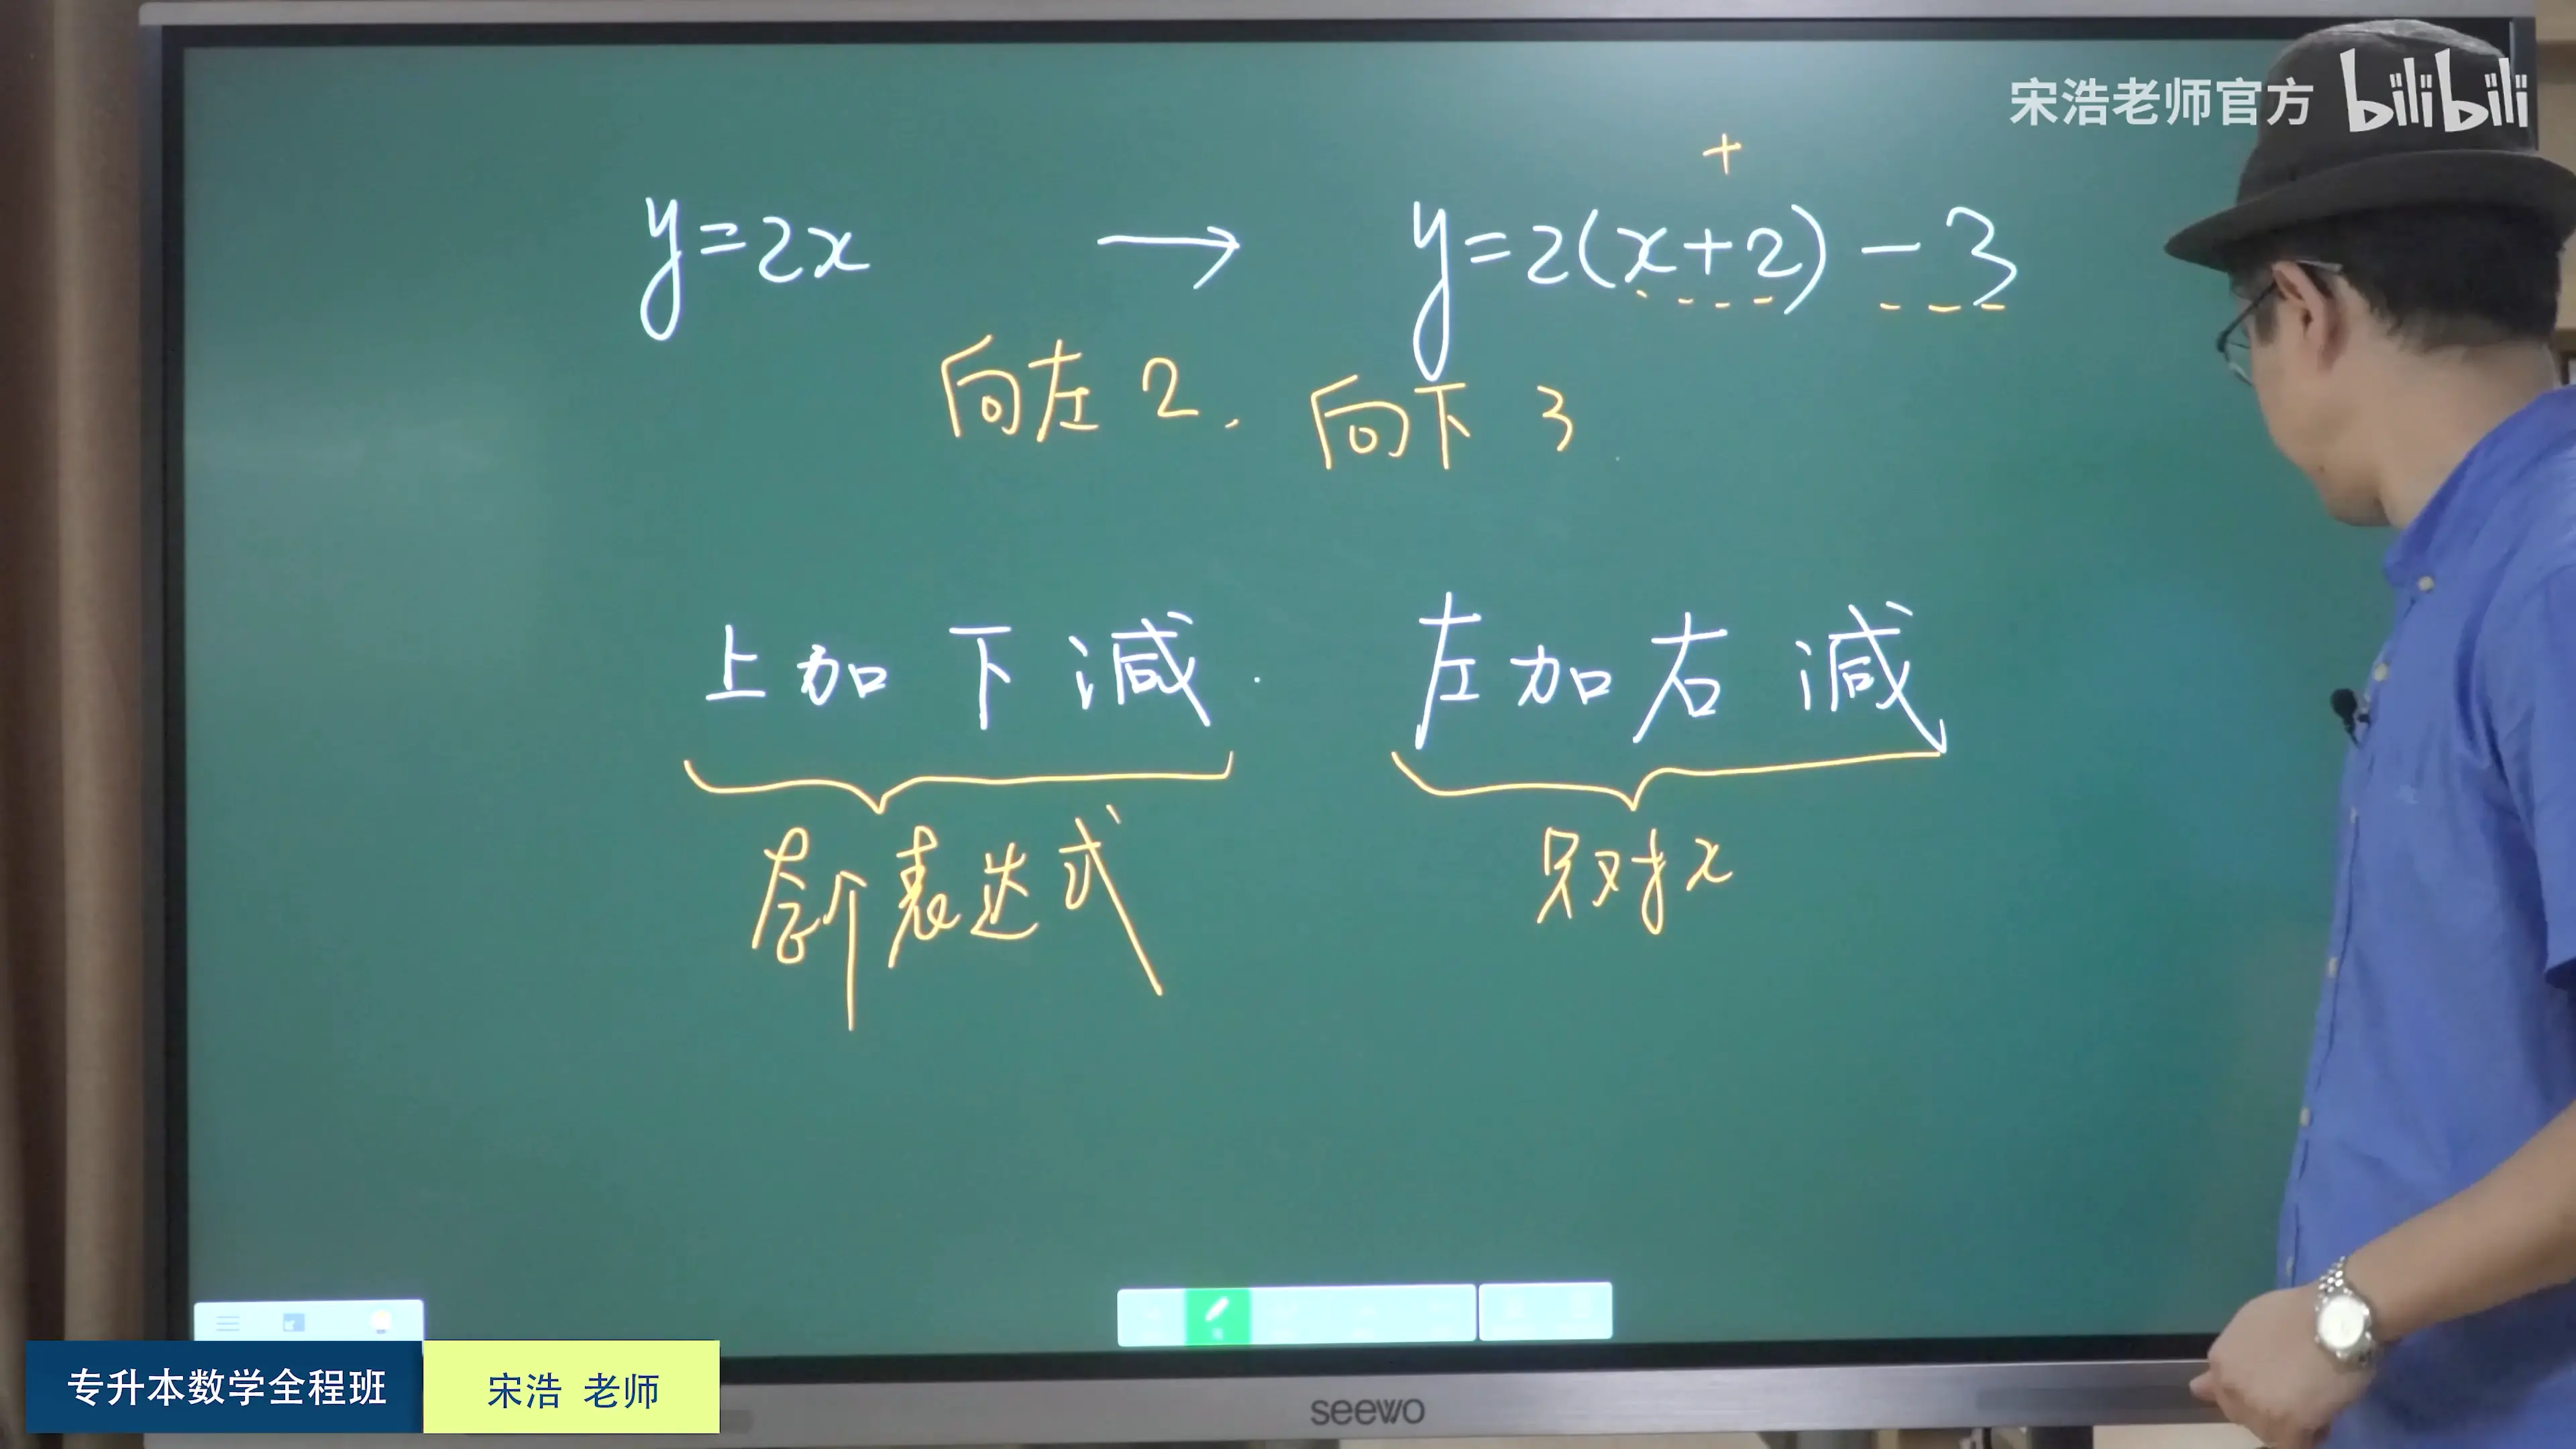 宋浩老师官方 bilibili
+
y=2x → y=2(x+2)-3
向左2, 向下3
上加下减. 左加右减
整个表达式 只对x
专升本数学全程班 宋浩 老师
seewo